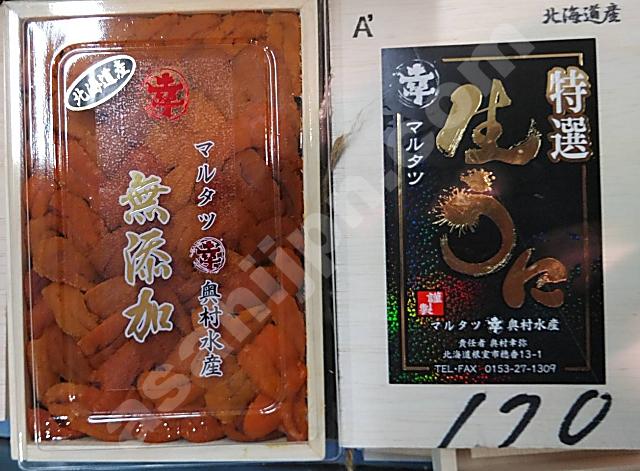 北海道産
幸
マルタツ幸奥村水産
無添加
A'
北海道産
幸
マルタツ
特選
生うに
謹製
マルタツ 幸 奥村水産
責任者 奥村幸弥
北海道根室市穂香13-1
TEL・FAX 0153-27-1309
170
asanijpn.com